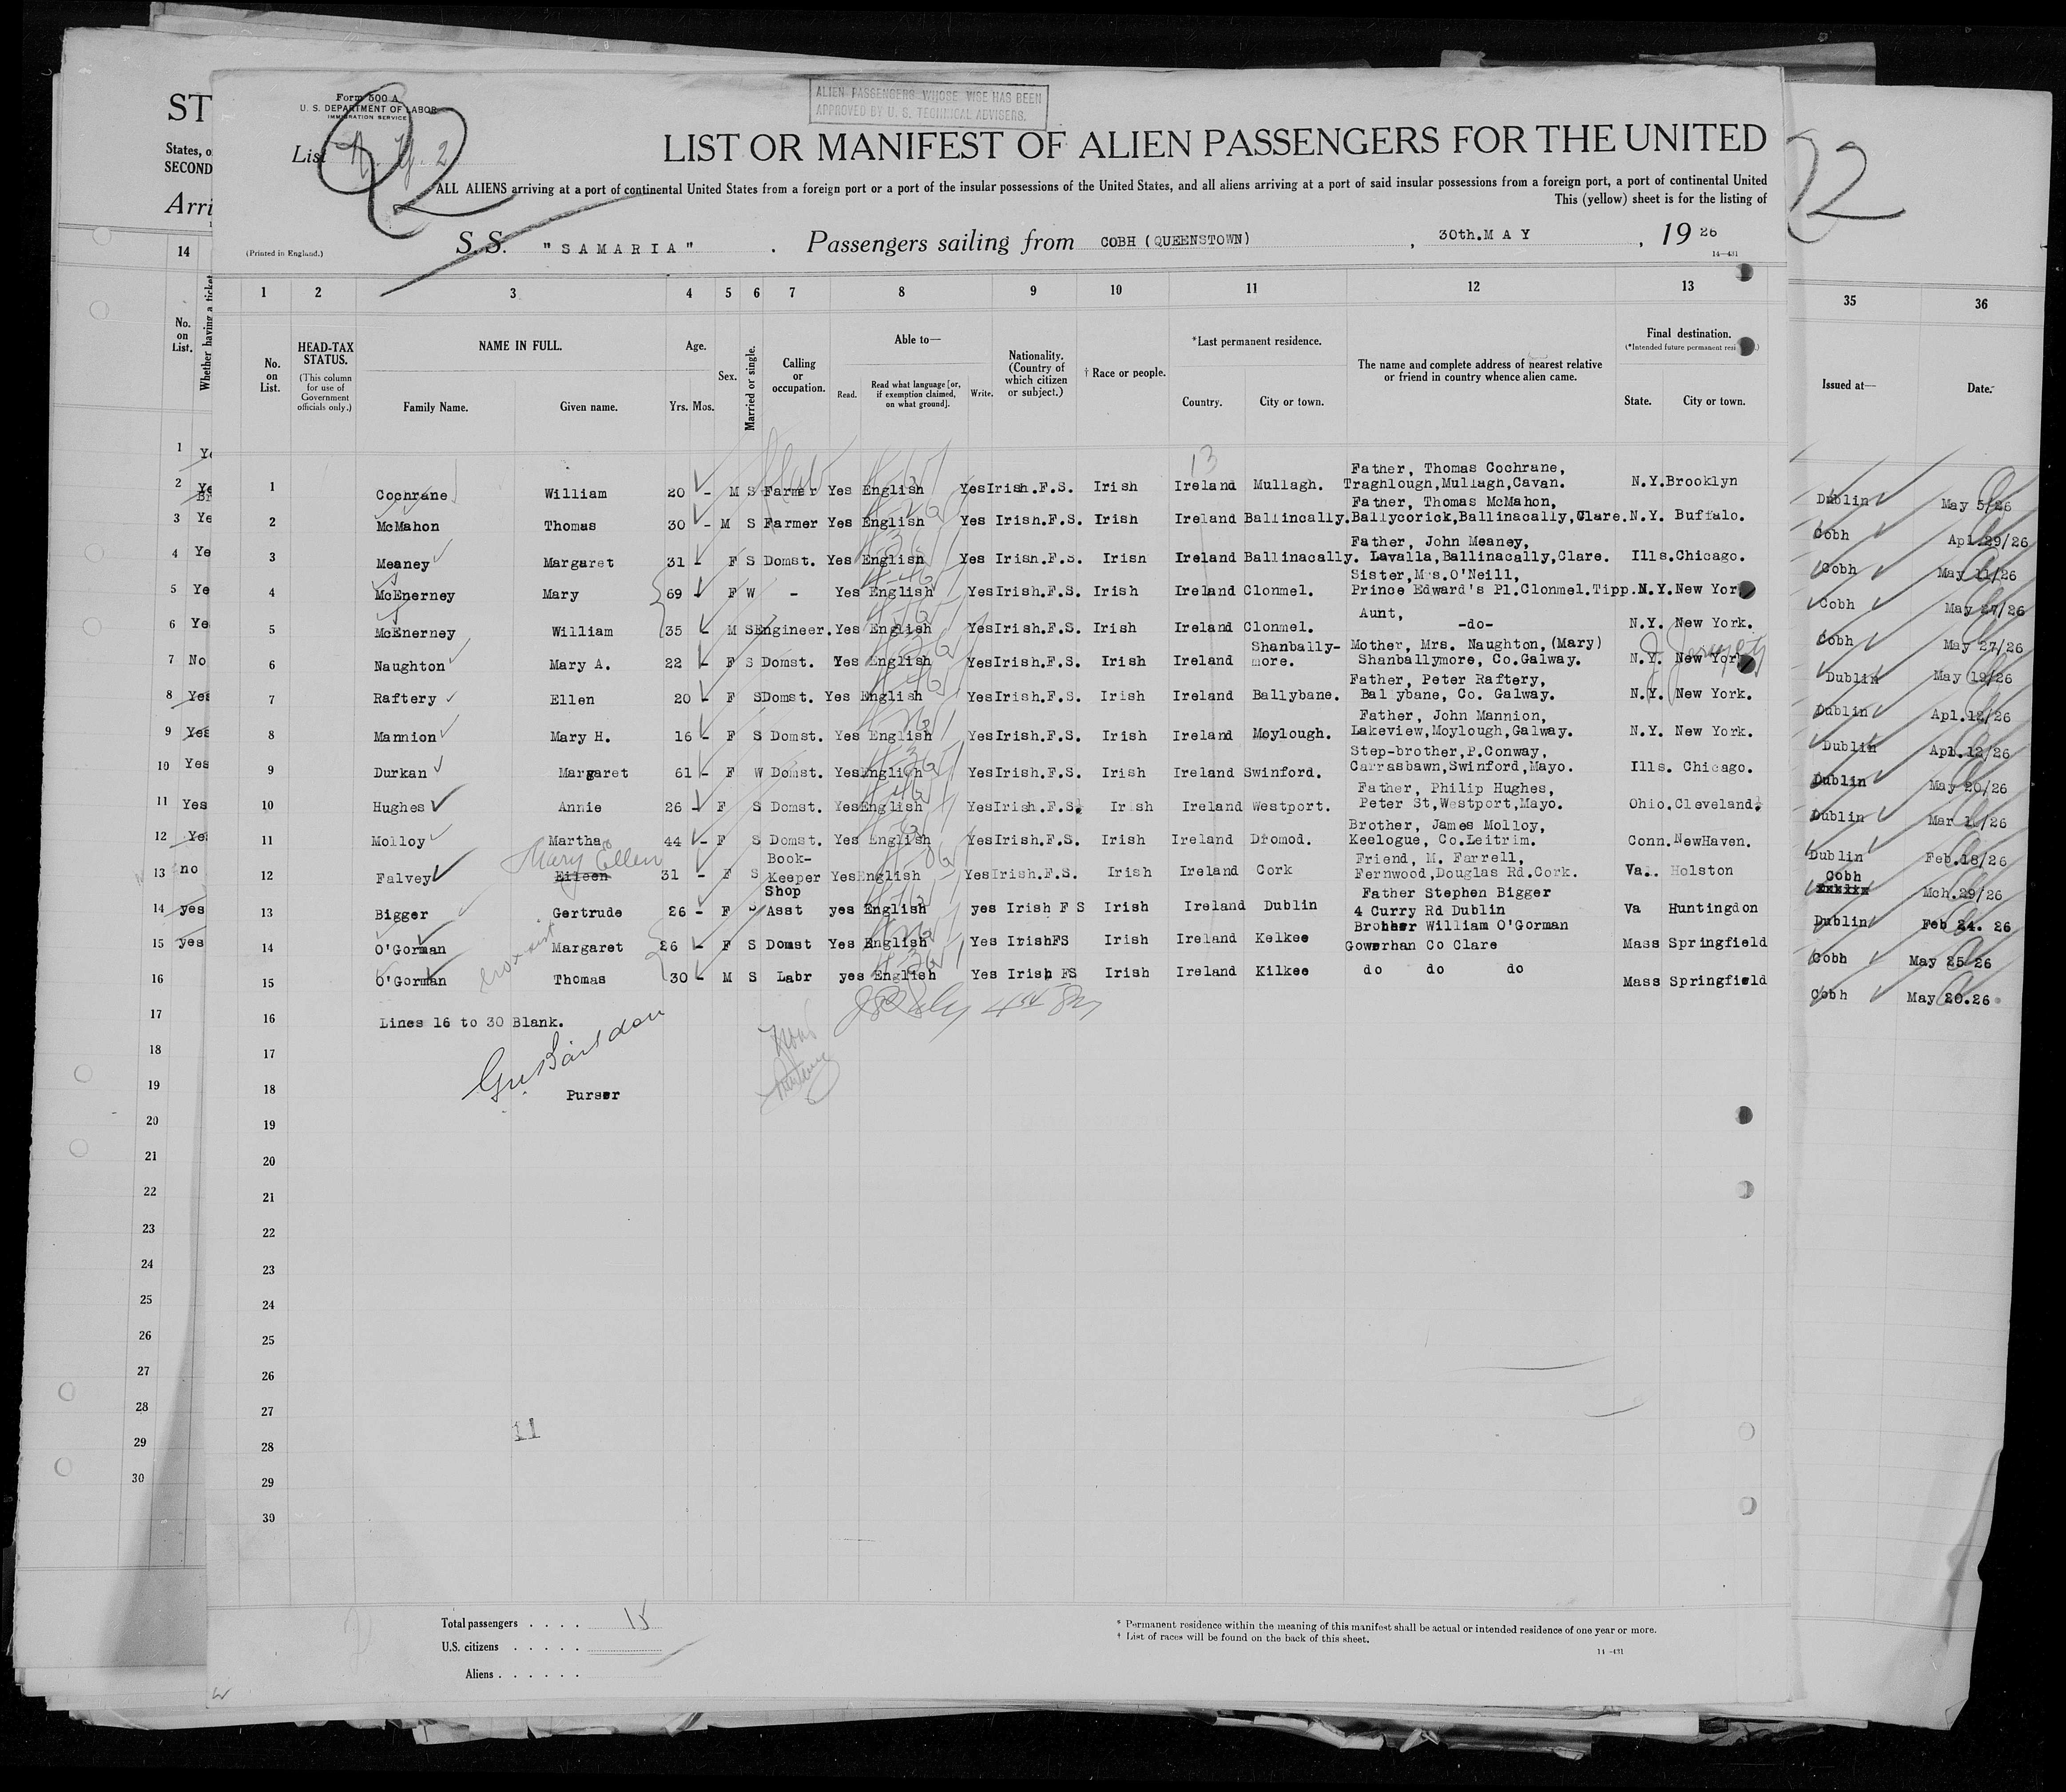 ST
States, o
SECOND
Arri
14
No.
on
List.
Whether having a ticket
Form 500 A
U. S. DEPARTMENT OF LABOR
IMMIGRATION SERVICE
List
2
ALIEN PASSENGERS WHOSE VISE HAS BEEN
APPROVED BY U. S. TECHNICAL ADVISERS.
LIST OR MANIFEST OF ALIEN PASSENGERS FOR THE UNITED
ALL ALIENS arriving at a port of continental United States from a foreign port or a port of the insular possessions of the United States, and all aliens arriving at a port of said insular possessions from a foreign port, a port of continental United
This (yellow) sheet is for the listing of
(Printed in England.)
S.S. "SAMARIA". Passengers sailing from COBH (QUEENSTOWN), 30th.MAY, 1926
14—431
1 2 3 4 5 6 7 8 9 10 11 12 13 35 36
No. on List.
HEAD-TAX STATUS.
(This column for use of Government officials only.)
NAME IN FULL.
Family Name. Given name.
Age.
Yrs. Mos.
Sex.
Married or single.
Calling or occupation.
Able to—
Read. Read what language [or, if exemption claimed, on what ground]. Write.
Nationality. (Country of which citizen or subject.)
† Race or people.
*Last permanent residence.
Country. City or town.
The name and complete address of nearest relative or friend in country whence alien came.
Final destination.
(*Intended future permanent resi
State. City or town.
Issued at— Date.
13
Father, Thomas Cochrane,
1 Cochrane William 20 - M S Farmer Yes English Yes Irish.F.S. Irish Ireland Mullagh. Traghlough,Mullagh,Cavan. N.Y. Brooklyn Dublin May 5/26
Father, Thomas McMahon,
2 McMahon Thomas 30 - M S Farmer Yes English Yes Irish.F.S. Irish Ireland Ballincally. Ballycorick,Ballinacally,Clare. N.Y. Buffalo. Cobh Apl.29/26
Father, John Meaney,
3 Meaney Margaret 31 - F S Domst. Yes English Yes Irish.F.S. Irish Ireland Ballinacally. Lavalla,Ballinacally,Clare. Ills. Chicago. Cobh May 11/26
Sister,Mrs.O'Neill,
4 McEnerney Mary 69 - F W - Yes English Yes Irish.F.S. Irish Ireland Clonmel. Prince Edward's Pl.Clonmel.Tipp. N.Y. New Yor Cobh May 27/26
Aunt,
5 McEnerney William 35 - M S Engineer. Yes English Yes Irish.F.S. Irish Ireland Clonmel. -do- N.Y. New York. Cobh May 27/26
Shanbally- Mother, Mrs. Naughton,(Mary)
6 Naughton Mary A. 22 - F S Domst. Yes English Yes Irish.F.S. Irish Ireland more. Shanballymore, Co.Galway. N.Y. New Yor Dublin May 19/26
J Jersey City
Father, Peter Raftery,
7 Raftery Ellen 20 - F S Domst. Yes English Yes Irish.F.S. Irish Ireland Ballybane. Ballybane, Co. Galway. N.Y. New York. Dublin Apl.12/26
Father, John Mannion,
8 Mannion Mary H. 16 - F S Domst. Yes English Yes Irish.F.S. Irish Ireland Moylough. Lakeview,Moylough,Galway. N.Y. New York. Dublin Apl.12/26
Step-brother,P.Conway,
9 Durkan Margaret 61 - F W Domst. Yes English Yes Irish.F.S. Irish Ireland Swinford. Carrasbawn,Swinford,Mayo. Ills. Chicago. Dublin May 20/26
Father, Philip Hughes,
10 Hughes Annie 26 - F S Domst. Yes English Yes Irish.F.S. Irish Ireland Westport. Peter St,Westport,Mayo. Ohio. Cleveland. Dublin Mar 1 /26
Brother, James Molloy,
11 Molloy Martha 44 - F S Domst. Yes English Yes Irish.F.S. Irish Ireland Dromod. Keelogue, Co.Leitrim. Conn. NewHaven. Dublin Feb.18/26
Mary Ellen
Book- Friend, M. Farrell,
12 Falvey Eileen 31 - F S Keeper Yes English Yes Irish.F.S. Irish Ireland Cork Fernwood,Douglas Rd.Cork. Va.. Holston Cobh Mch.29/26
Shop Father Stephen Bigger
13 Bigger Gertrude 26 - F S Asst yes English yes Irish F S Irish Ireland Dublin 4 Curry Rd Dublin Va Huntingdon Dublin Feb 24. 26
Brother William O'Gorman
14 O'Gorman Margaret 26 - F S Domst Yes English Yes IrishFS Irish Ireland Kelkee Gowerhan Co Clare Mass Springfield Cobh May 25 26
15 O'Gorman Thomas 30 - M S Labr yes English Yes Irish FS Irish Ireland Kilkee do do do Mass Springfield Cobh May 20.26
16 Lines 16 to 30 Blank.
17
18 Purser
19
20
21
22
23
24
25
26
27
28
29
30
11
1 Ye
2 Ye
3 Ye
4 Ye
5 Ye
6 Ye
7 No
8 Yes
9 Yes
10 Yes
11 Yes
12 Yes
13 no
14 yes
15 yes
16
17
18
19
20
21
22
23
24
25
26
27
28
29
30
Total passengers . . . . 15
U.S. citizens . . . . .
Aliens . . . . . .
* Permanent residence within the meaning of this manifest shall be actual or intended residence of one year or more.
† List of races will be found on the back of this sheet.
14—431